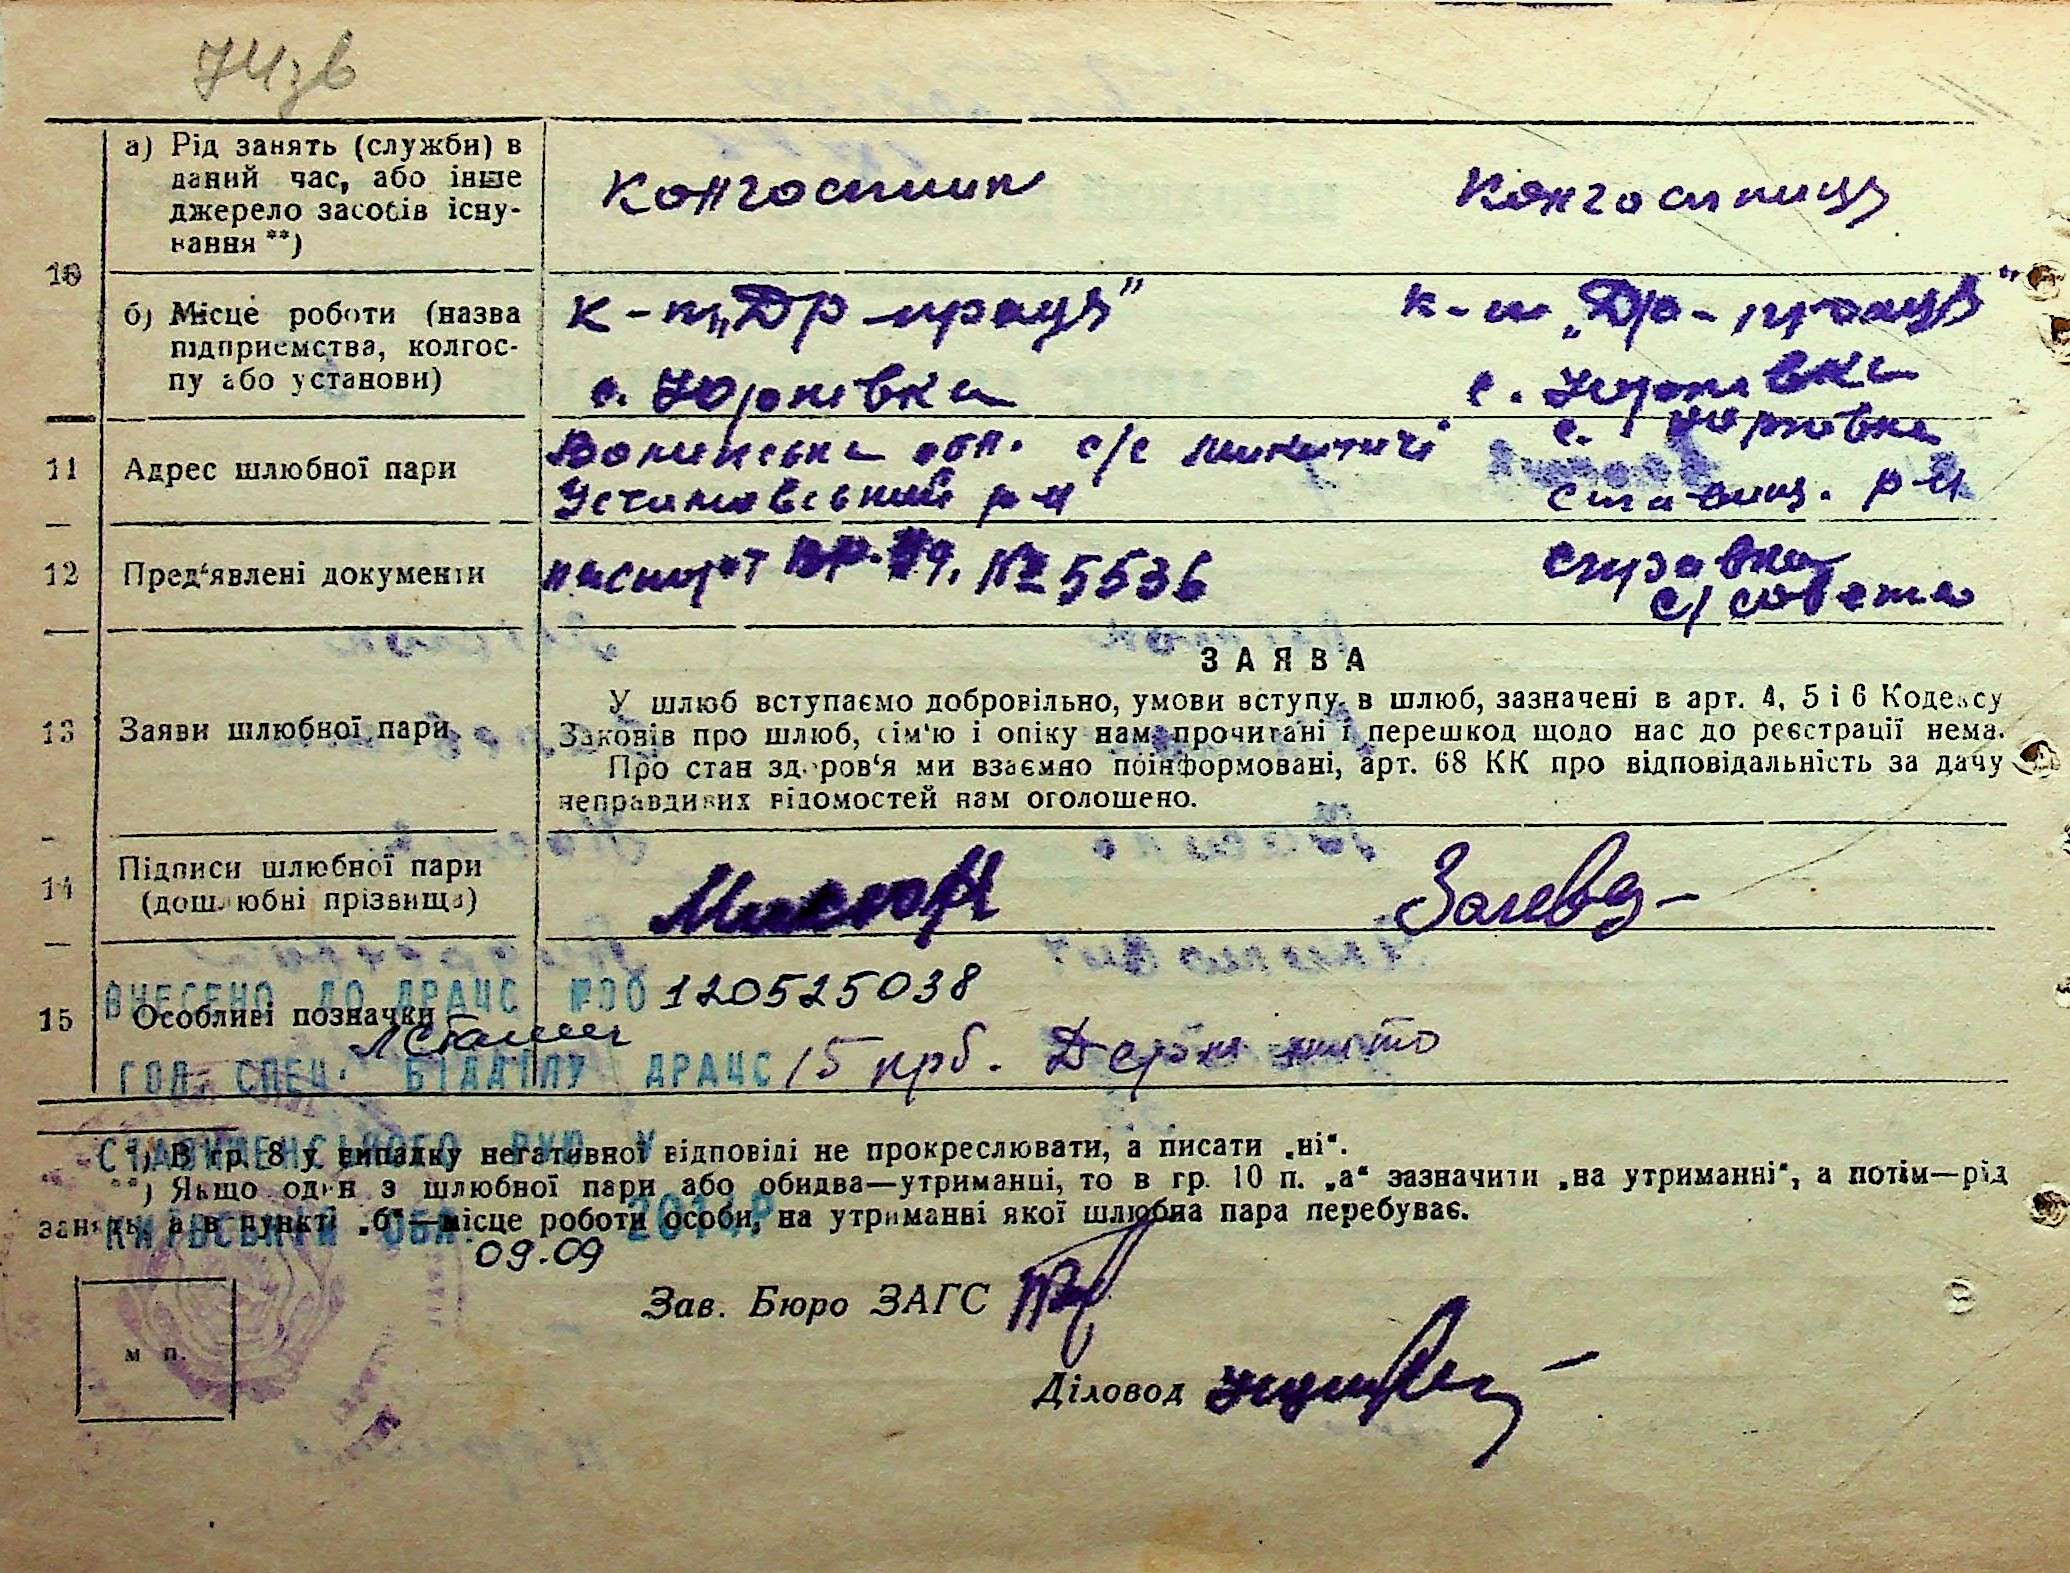 10
а) Рід занять (служби) в
даний час, або інше
джерело засобів існу-
вання **)
Колгоспник
Колгоспниця
б) Місце роботи (назва
підприємства, колгос-
пу або установи)
к-п „Др-праця"
с. Юрківка
к-п „Др-праця"
с. Юрківка
11
Адрес шлюбної пари
Волинська обл. с/с Микитичі
Устиловський р-н
с. Юрковка
Ставищ. р-н
12
Пред‘явлені документи
паспорт № 5536
справка
с/совета
13
Заяви шлюбної пари
ЗАЯВА
У шлюб вступаємо добровільно, умови вступу в шлюб, зазначені в арт. 4, 5 і 6 Кодексу
Законів про шлюб, сім'ю і опіку нам прочитані і перешкод щодо нас до реєстрації нема.
Про стан здоров‘я ми взаємно поінформовані, арт. 68 КК про відповідальність за дачу
неправдивих відомостей нам оголошено.
14
Підписи шлюбної пари
(дошлюбні прізвища)
15
Особливі позначки
ВНЕСЕНО ДО ДРАЦС №00 120525038
ГОЛ. СПЕЦ. ВІДДІЛУ ДРАЦС
15 крб. Держ мито
СТАВИЩЕНСЬКОГО РУЮ У
*) В гр. 8 у випадку негативної відповіді не прокреслювати, а писати „ні“.
**) Якщо один з шлюбної пари або обидва—утриманці, то в гр. 10 п. „а“ зазначити „на утриманні“, а потім—рід
занять, а в пункті „б“—місце роботи особи, на утриманні якої шлюбна пара перебуває.
КИЇВСЬКІЙ ОБЛ. 2014р
09.09
Зав. Бюро ЗАГС
м п.
Діловод